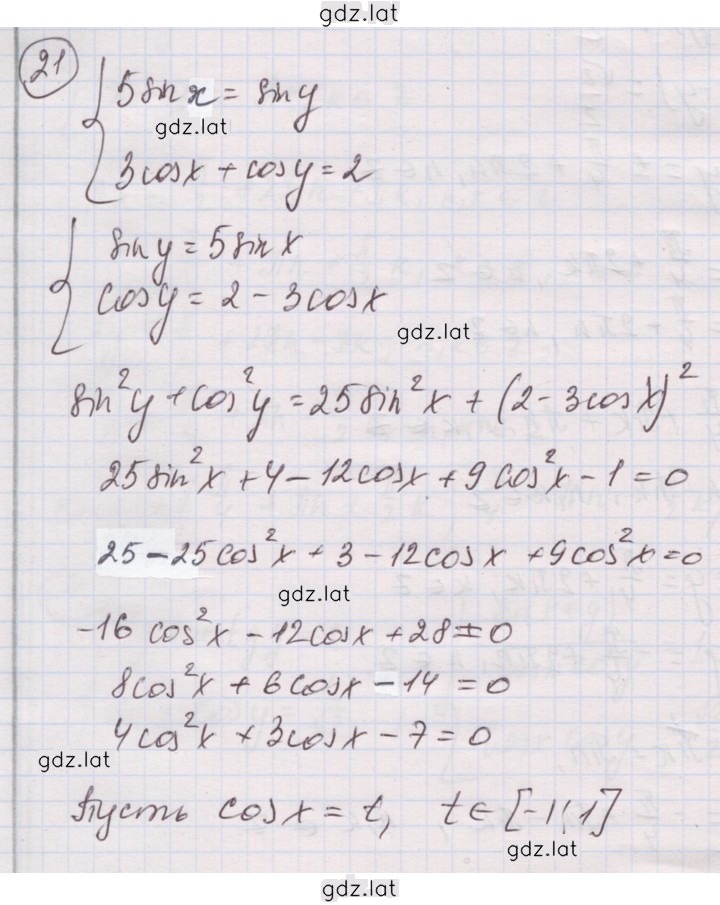 gdz.lat
21
5sinx = siny
gdz.lat
3cosx + cosy = 2
siny = 5sinx
cosy = 2 - 3cosx
gdz.lat
sin²y + cos²y = 25sin²x + (2 - 3cosx)²
25sin²x + 4 - 12cosx + 9cos²x - 1 = 0
25 - 25cos²x + 3 - 12cosx + 9cos²x = 0
gdz.lat
-16cos²x - 12cosx + 28 = 0
8cos²x + 6cosx - 14 = 0
4cos²x + 3cosx - 7 = 0
gdz.lat
Пусть cosx = t, t ∈ [-1;1]
gdz.lat
gdz.lat